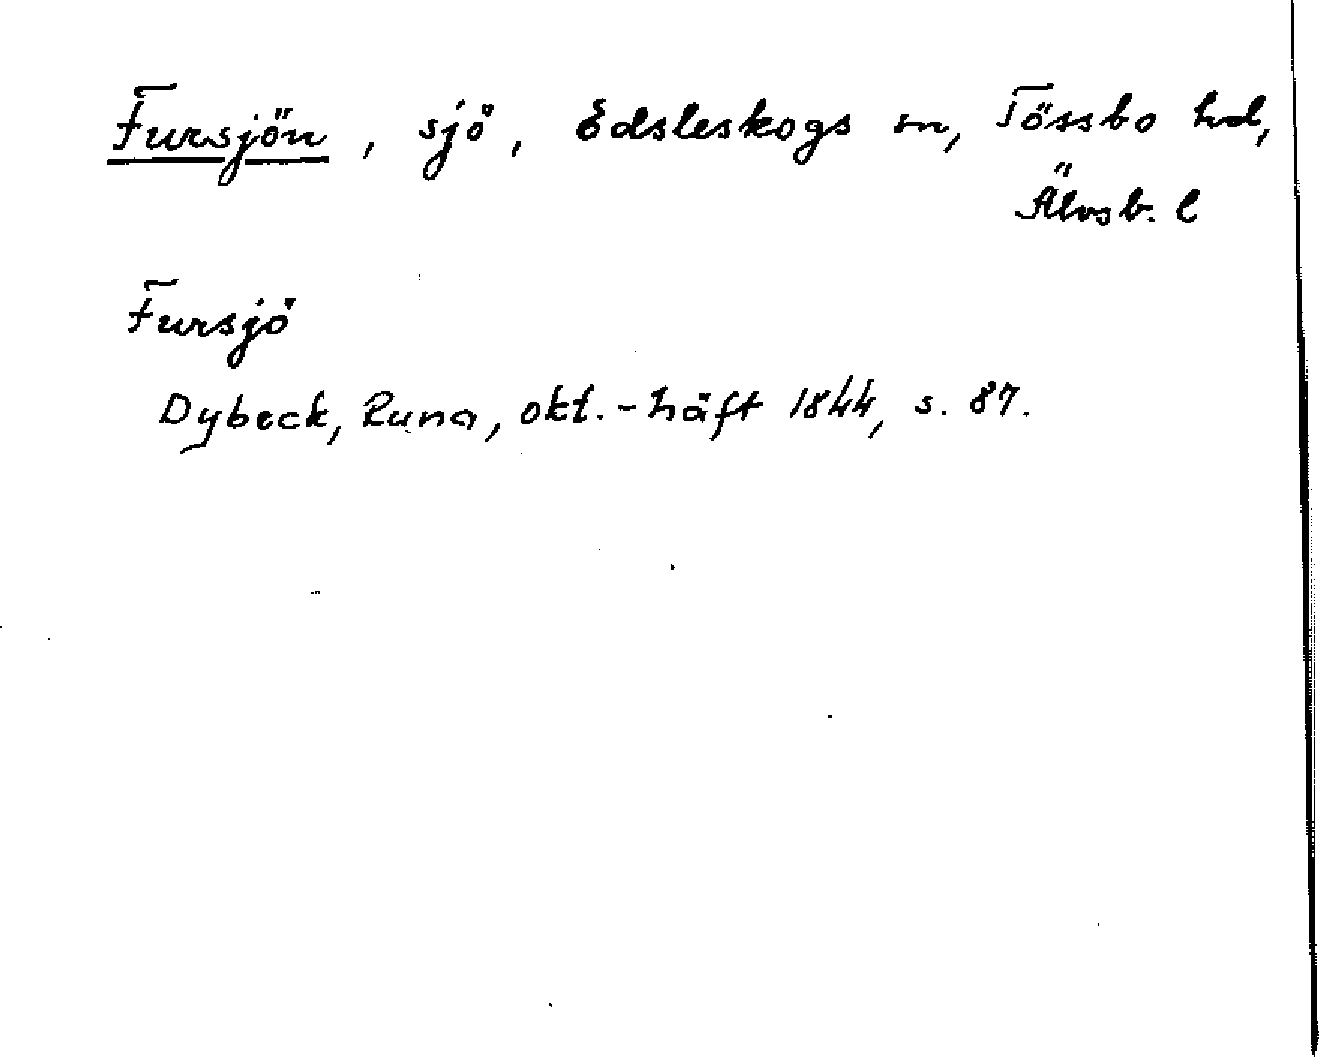 Fursjön, sjö, Edsleskogs sn, Tössbo hd,
Älvsb. l
Fursjö
Dybeck, Runa, okt.-häft 1844, s. 87.